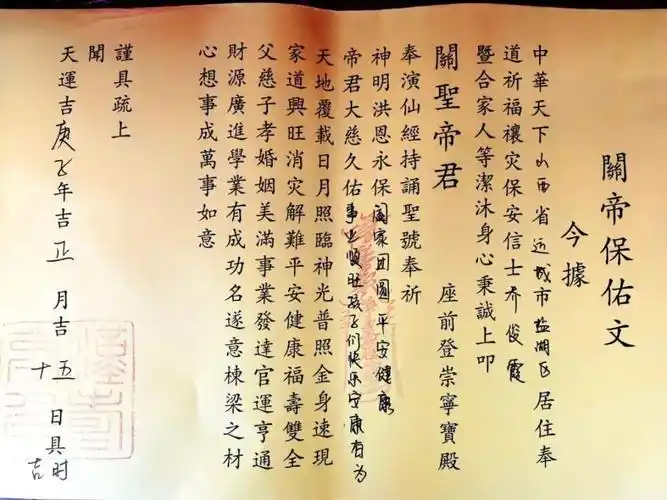 關帝保佑文
今據
中華天下山西省运城市盐湖区居住奉
道祈福禳灾保安信士乔俊霞
暨合家人等潔沐身心秉誠上叩
關聖帝君 座前登崇寧寶殿
奉演仙經持誦聖號奉祈
神明洪恩永保阖家团圆平安健康
帝君大慈久佑事业顺旺孩子们快乐安康有为
天地覆載日月照臨神光普照金身速現
家道興旺消灾解難平安健康福壽雙全
父慈子孝婚姻美滿事業發達官運亨通
財源廣進學業有成功名遂意棟梁之材
心想事成萬事如意
謹具疏上
聞
天運吉庚子年吉正月吉十五日具时吉